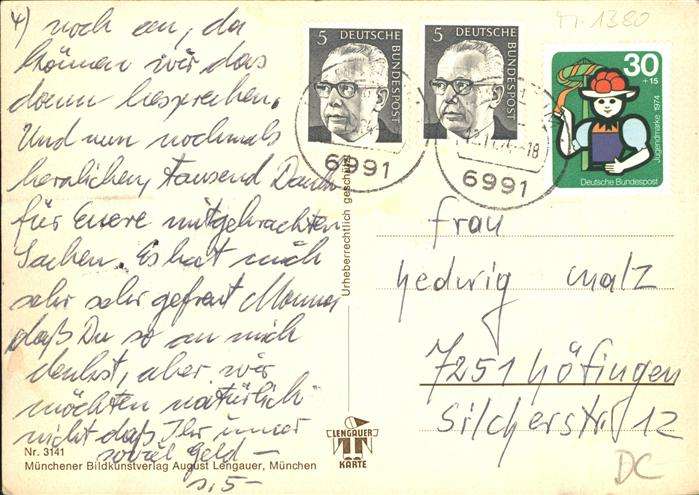 4) noch an, da
können wir das
dann besprechen.
Und nun nochmals
herzlichen, tausend Dank
für Euere mitgebrachten
Sachen. Es hat mich
sehr sehr gefreut
daß Du so an mich
denkst, aber wir
möchten natürlich
nicht daß Ihr immer
soviel Geld –
s. 5 –
Nr. 3141
Münchener Bildkunstverlag August Lengauer, München
Urheberrechtlich geschützt
LENGAUER
KARTE
5 DEUTSCHE BUNDESPOST
5 DEUTSCHE BUNDESPOST
30 +15
Jugendmarke 1974
Deutsche Bundespost
6991
-18
6991
1380
Frau
Hedwig Malz
7251 Höfingen
Silcherstr. 12
DC